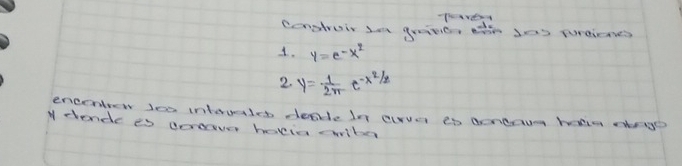 Tarea
construir la gráfica de las funciones
1. y = e^-x²
2. y = 1/2π e^-x²/2
encontrar los intervalos donde la curva es concava hacia abajo
y donde es concava hacia arriba